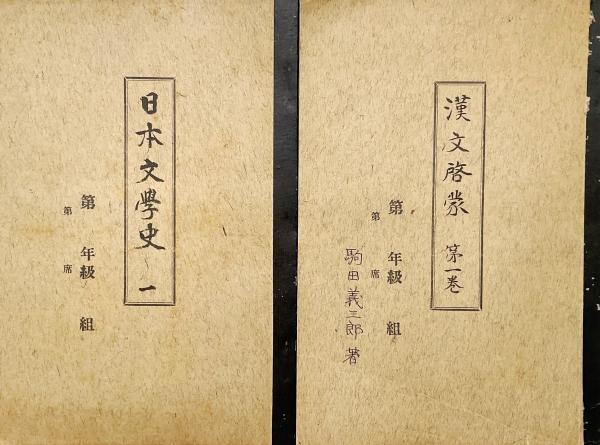 日本文學史 一
第 年級 組
第 席
漢文啓蒙 第一巻
第 年級 組
第 席
駒田義三郎 著